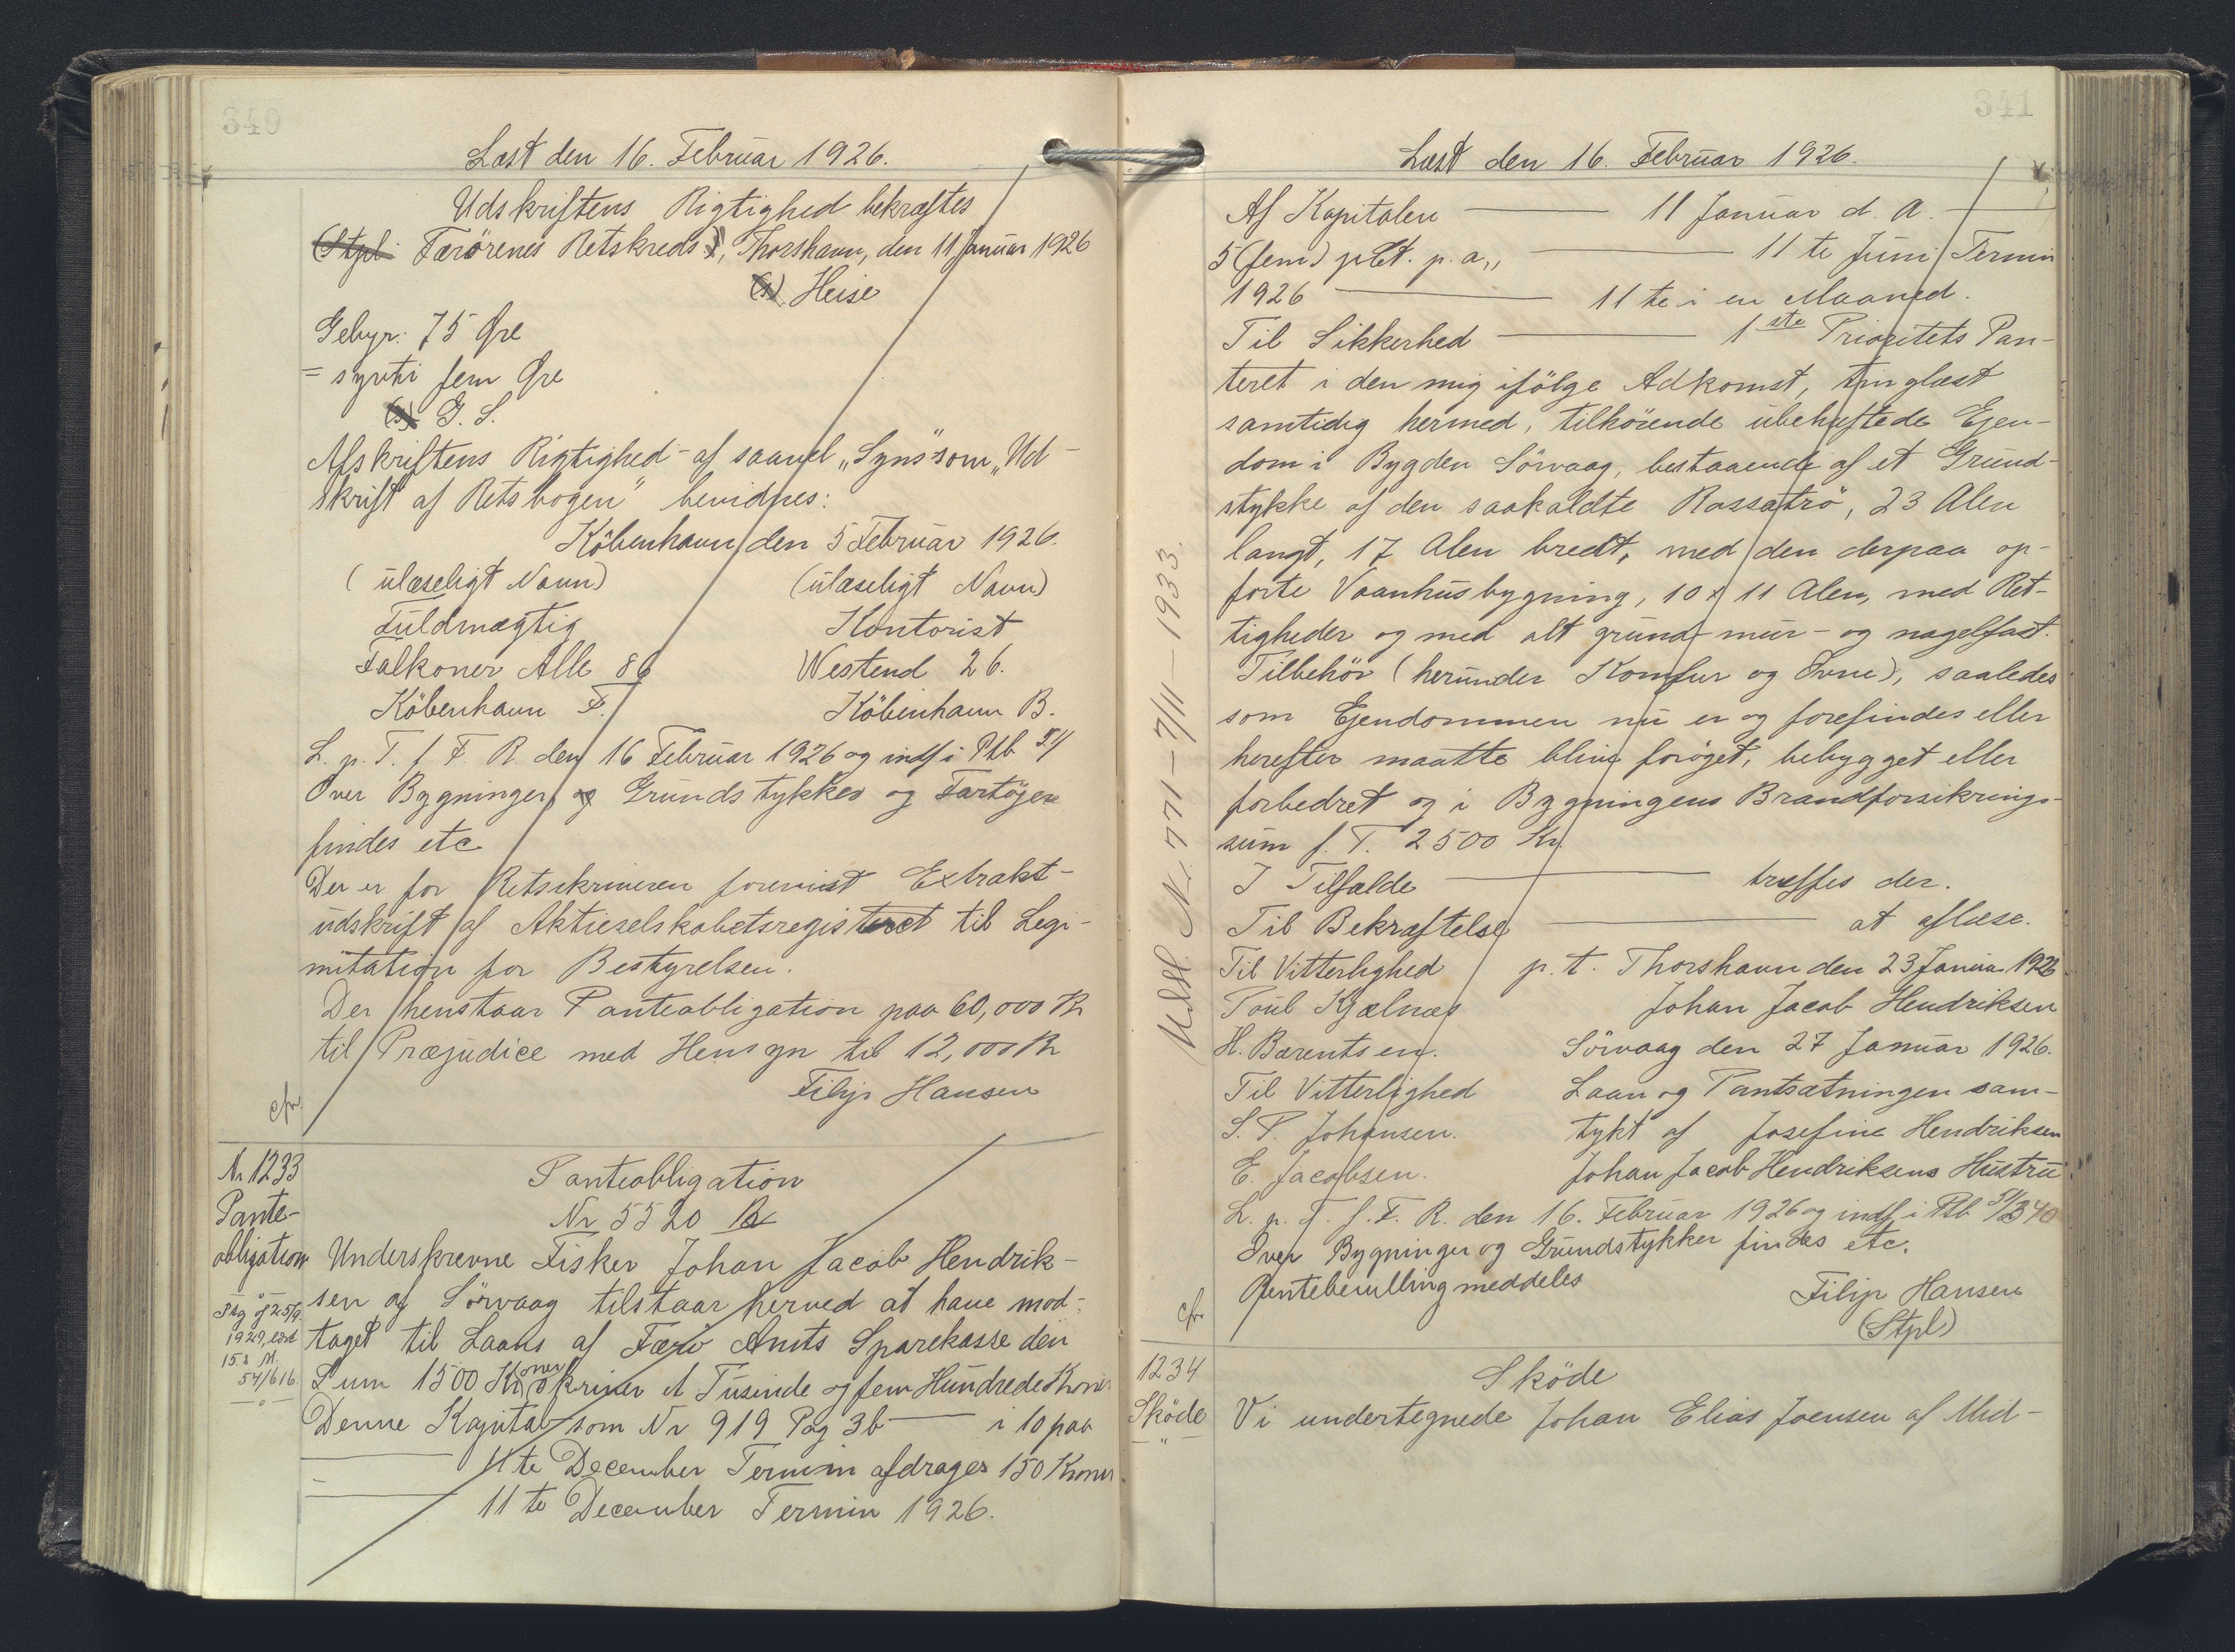 340
Læst den 16. Februar 1926.
Udskriftens Rigtighed bekræftes
(Stpl. Færörenes Retskreds), Thorshavn, den 11 Januar 1926
(s) Heise
Gebyr: 75 Øre
= sytti fem Øre
(s) G. S.
Afskriftens Rigtighed - af saavel „Syns" som „Ud-
skrift af Retsbogen" bevidnes:
Köbenhavn den 5 Februar 1926.
(ulæseligt Navn) (ulæseligt Navn)
Fuldmægtig Kontorist
Falkoner Alle 86 Westend 26.
Köbenhavn F. Köbenhavn B.
L. p. T. f. F. R. den 16 Februar 1926 og indf i Ptb
Over Bygninger, og Grundstykker og Fartöjer
findes etc
Der er for Retsskriveren forevist Extrakt-
udskrift af Aktieselskabetsregisteret til Legi-
mitation for Bestyrelsen.
Der henstaar Panteobligation paa 60,000 Kr
til Præjudice med Hensyn til 12,000 Kr
Filip Hansen
cfr.
Nr 1233
Pante-
obligation
1929,
15.8 M.
54/616.
Panteobligation
Nr 5520
Underskrevne Fisker Johan Jacob Hendrik-
sen af Sörvaag tilstaar herved at have mod-
taget til Laans af Færö Amts Sparekasse den
Sum 1500 Kroner skriver et Tusinde og fem Hundrede Kroner
Denne Kapital som Nr 919 Pag 36 — i 10 paa
— 11te December Termin afdrages 150 Kroner
— 11te December Termin 1926.
341
Læst den 16. Februar 1926.
Af Kapitalen — 11 Januar d. A. —
5 (fem) pCt. p. a., — 11te Juni Termin
1926 — 11te i en Maaned.
Til Sikkerhed — 1ste Prioritets Pan-
teret i den mig ifölge Adkomst, tinglæst
samtidig hermed, tilhörende ubehæftede Ejen-
dom i Bygden Sörvaag, bestaaende af et Grund-
stykke af den saakaldte Rossatrö, 23 Alen
langt, 17 Alen bredt, med den derpaa op-
förte Vaanhusbygning, 10 x 11 Alen, med Ret-
tigheder og med alt grund- mur- og nagelfast.
Tilbehör (herunder Komfur og Ovne), saaledes
som Ejendommen nu er og forefindes eller
herefter maatte blive foröget, bebygget eller
forbedret og i Bygningens Brandforsikrings-
sum f. T. 2500 Kr.
I Tilfælde — træffes der.
Til Bekræftelse — at aflæse.
Til Vitterlighed p. t. Thorshavn den 23 Januar 1926
Poul Kjælnæs Johan Jacob Hendriksen
H. Bærentsen. Sörvaag den 27 Januar 1926.
Til Vitterlighed Laan og Pantsætningen sam-
S. P. Johansen. tykt af Josefine Hendriksen
E. Jacobsen. Johan Jacob Hendriksens Hustru
L. p. T. f. F. R. den 16. Februar 1926 og indf i Ptb
Over Bygninger og Grundstykker findes etc.
Rentebevilling meddeles
Filip Hansen
(Stpl)
cfr.
Nr. 771 - 7/11 - 1933.
1234
Sköde
Sköde
Vi undertegnede Johan Elias Joensen af Mid-